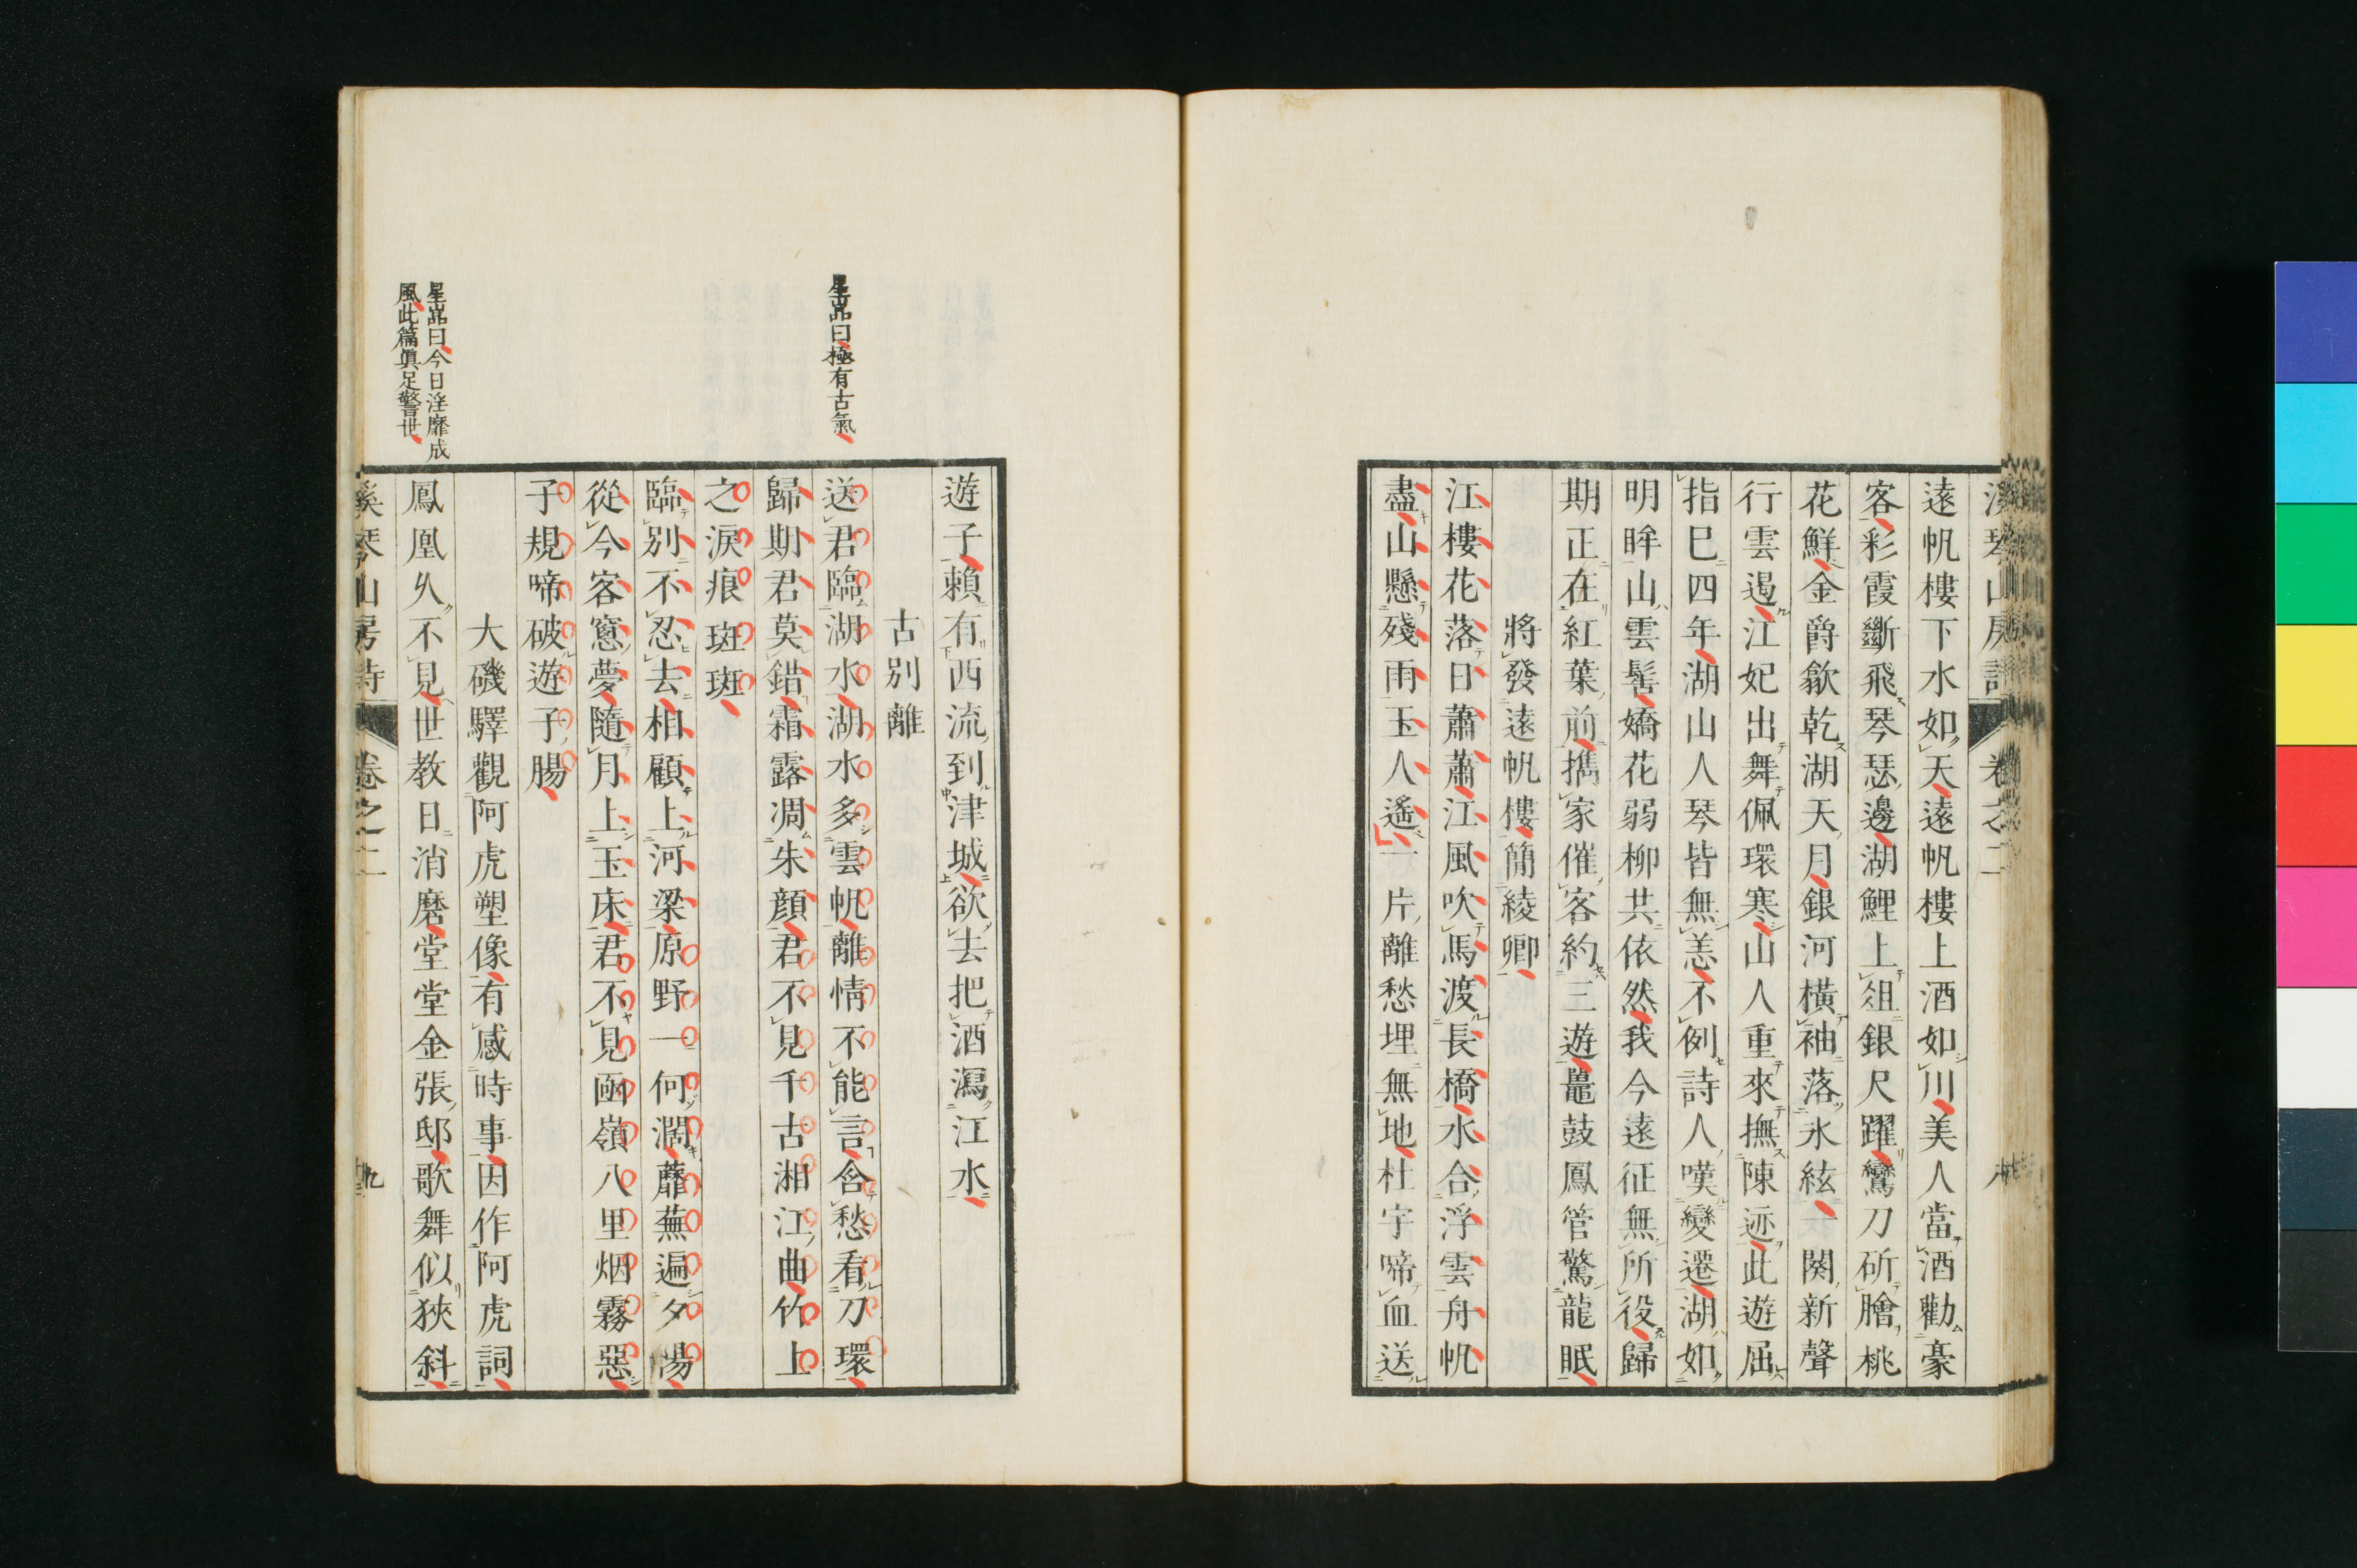 遠帆樓下水如天遠帆樓上酒如川美人當酒勸豪
客彩霞斷飛琴瑟邊湖鯉上俎銀尺躍鸞刀斫膾桃
花鮮金爵歙乾湖天月銀河橫袖落氷絃一関新聲
行雲遏江妃出舞佩環寒山人重來撫陳迹此遊屈
指巳四年湖山人琴皆無恙不例詩人嘆變遷湖如
明眸山雲髻嬌花弱柳共依然我今遠征無所役歸
期正在紅葉前攜家催客約三遊鼉鼓鳳管驚龍眠
將發遠帆樓簡綾卿
江樓花落日蕭蕭江風吹馬渡長橋水合浮雲舟帆
盡山懸殘雨玉人遙一片離愁埋無地杜宇啼血送
遊子賴有西流到津城欲去把酒瀉江水
古別離
星嵓曰極有古氣
送君臨湖水湖水多雲帆離情不能言含愁看刀環
歸期君莫錯霜露凋朱顔君不見千古湘江曲竹上
之淚痕斑斑
臨別不忍去相顧上河梁原野一何濶蘼蕪遍夕陽
從今客窻夢隨月上玉床君不見凾嶺八里烟霧惡
子規啼破遊子腸
大磯驛觀阿虎塑像有感時事因作阿虎詞
星嵓曰今日淫靡成
風此篇眞足警世
鳳凰久不見世教日消磨堂堂金張邸歌舞似狹斜
溪琴山房詩 卷之二 九